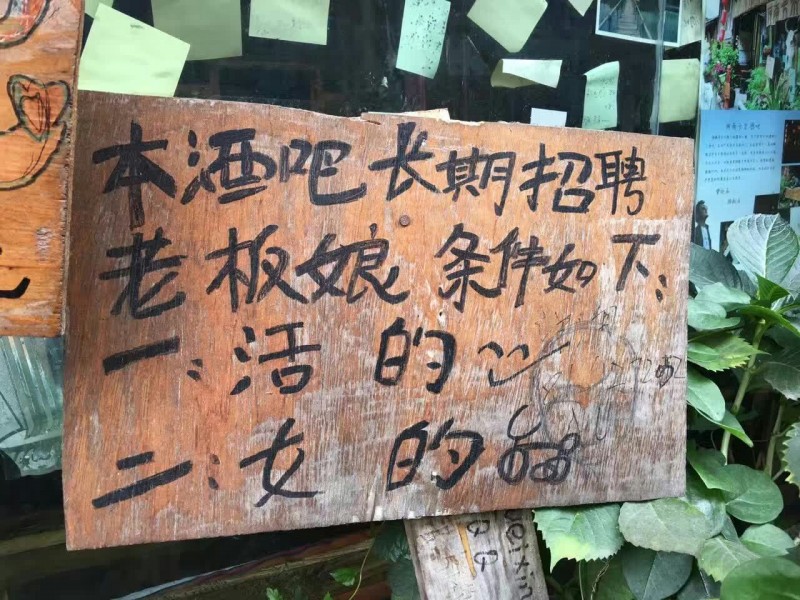 本酒吧长期招聘
老板娘 条件如下:
一:活 的
二:女 的
weixin
QQ